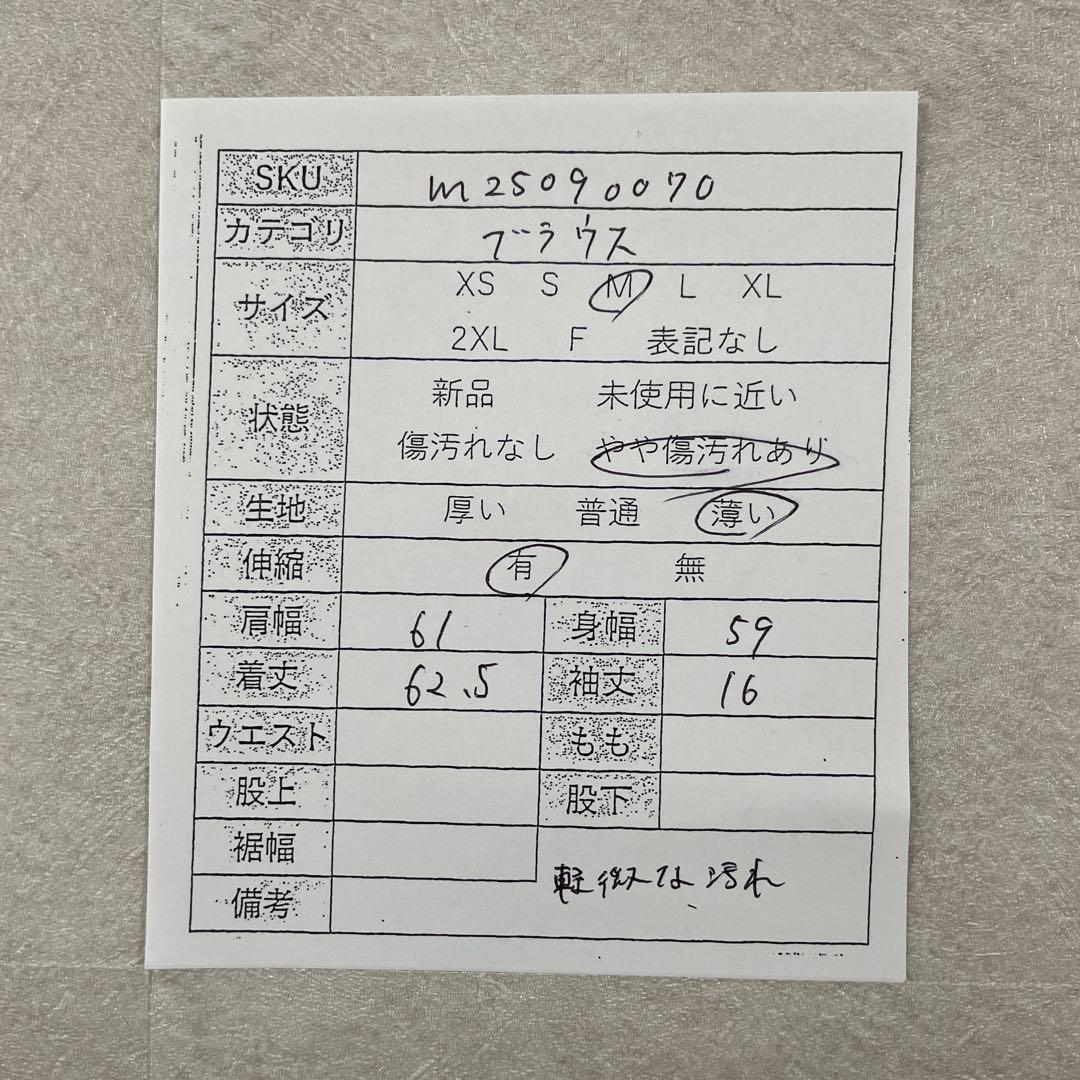 SKU m25090070
カテゴリ ブラウス
サイズ XS S M L XL
2XL F 表記なし
状態 新品 未使用に近い
傷汚れなし やや傷汚れあり
生地 厚い 普通 薄い
伸縮 有 無
肩幅 61 身幅 59
着丈 62.5 袖丈 16
ウエスト もも
股上 股下
裾幅
備考 軽微な汚れ